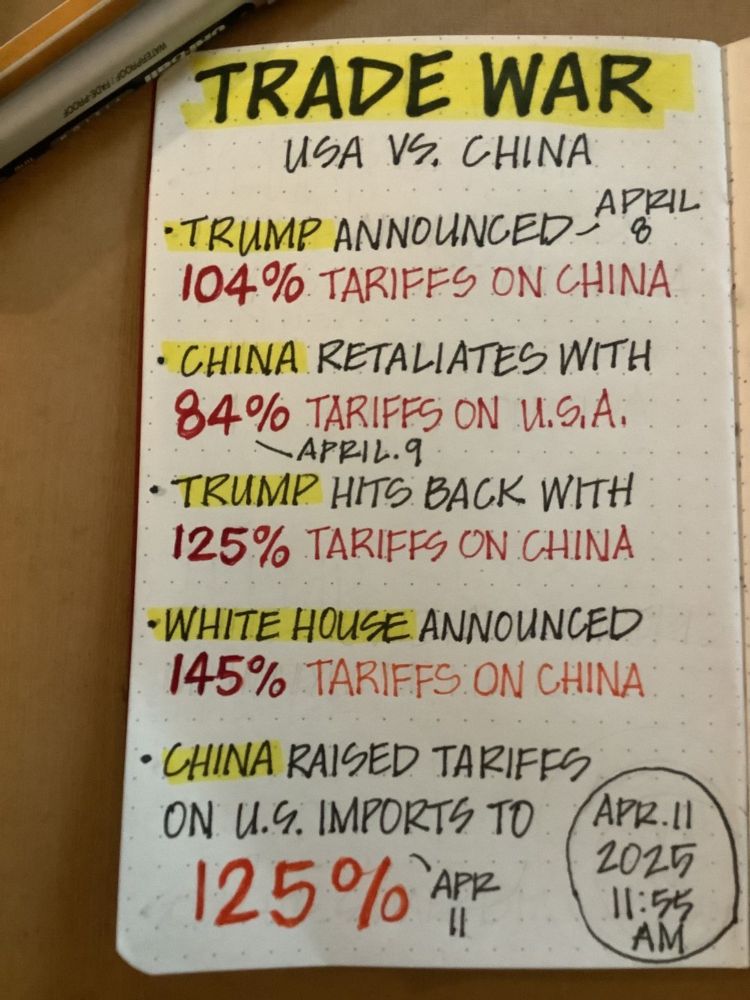 WATERPROOF / FADE-PROOF
TRADE WAR
USA VS. CHINA
• TRUMP ANNOUNCED – APRIL 8
104% TARIFFS ON CHINA
• CHINA RETALIATES WITH
84% TARIFFS ON U.S.A.
APRIL.9
• TRUMP HITS BACK WITH
125% TARIFFS ON CHINA
• WHITE HOUSE ANNOUNCED
145% TARIFFS ON CHINA
• CHINA RAISED TARIFFS
ON U.S. IMPORTS TO
125%
APR
11
APR.11
2025
11:55
AM